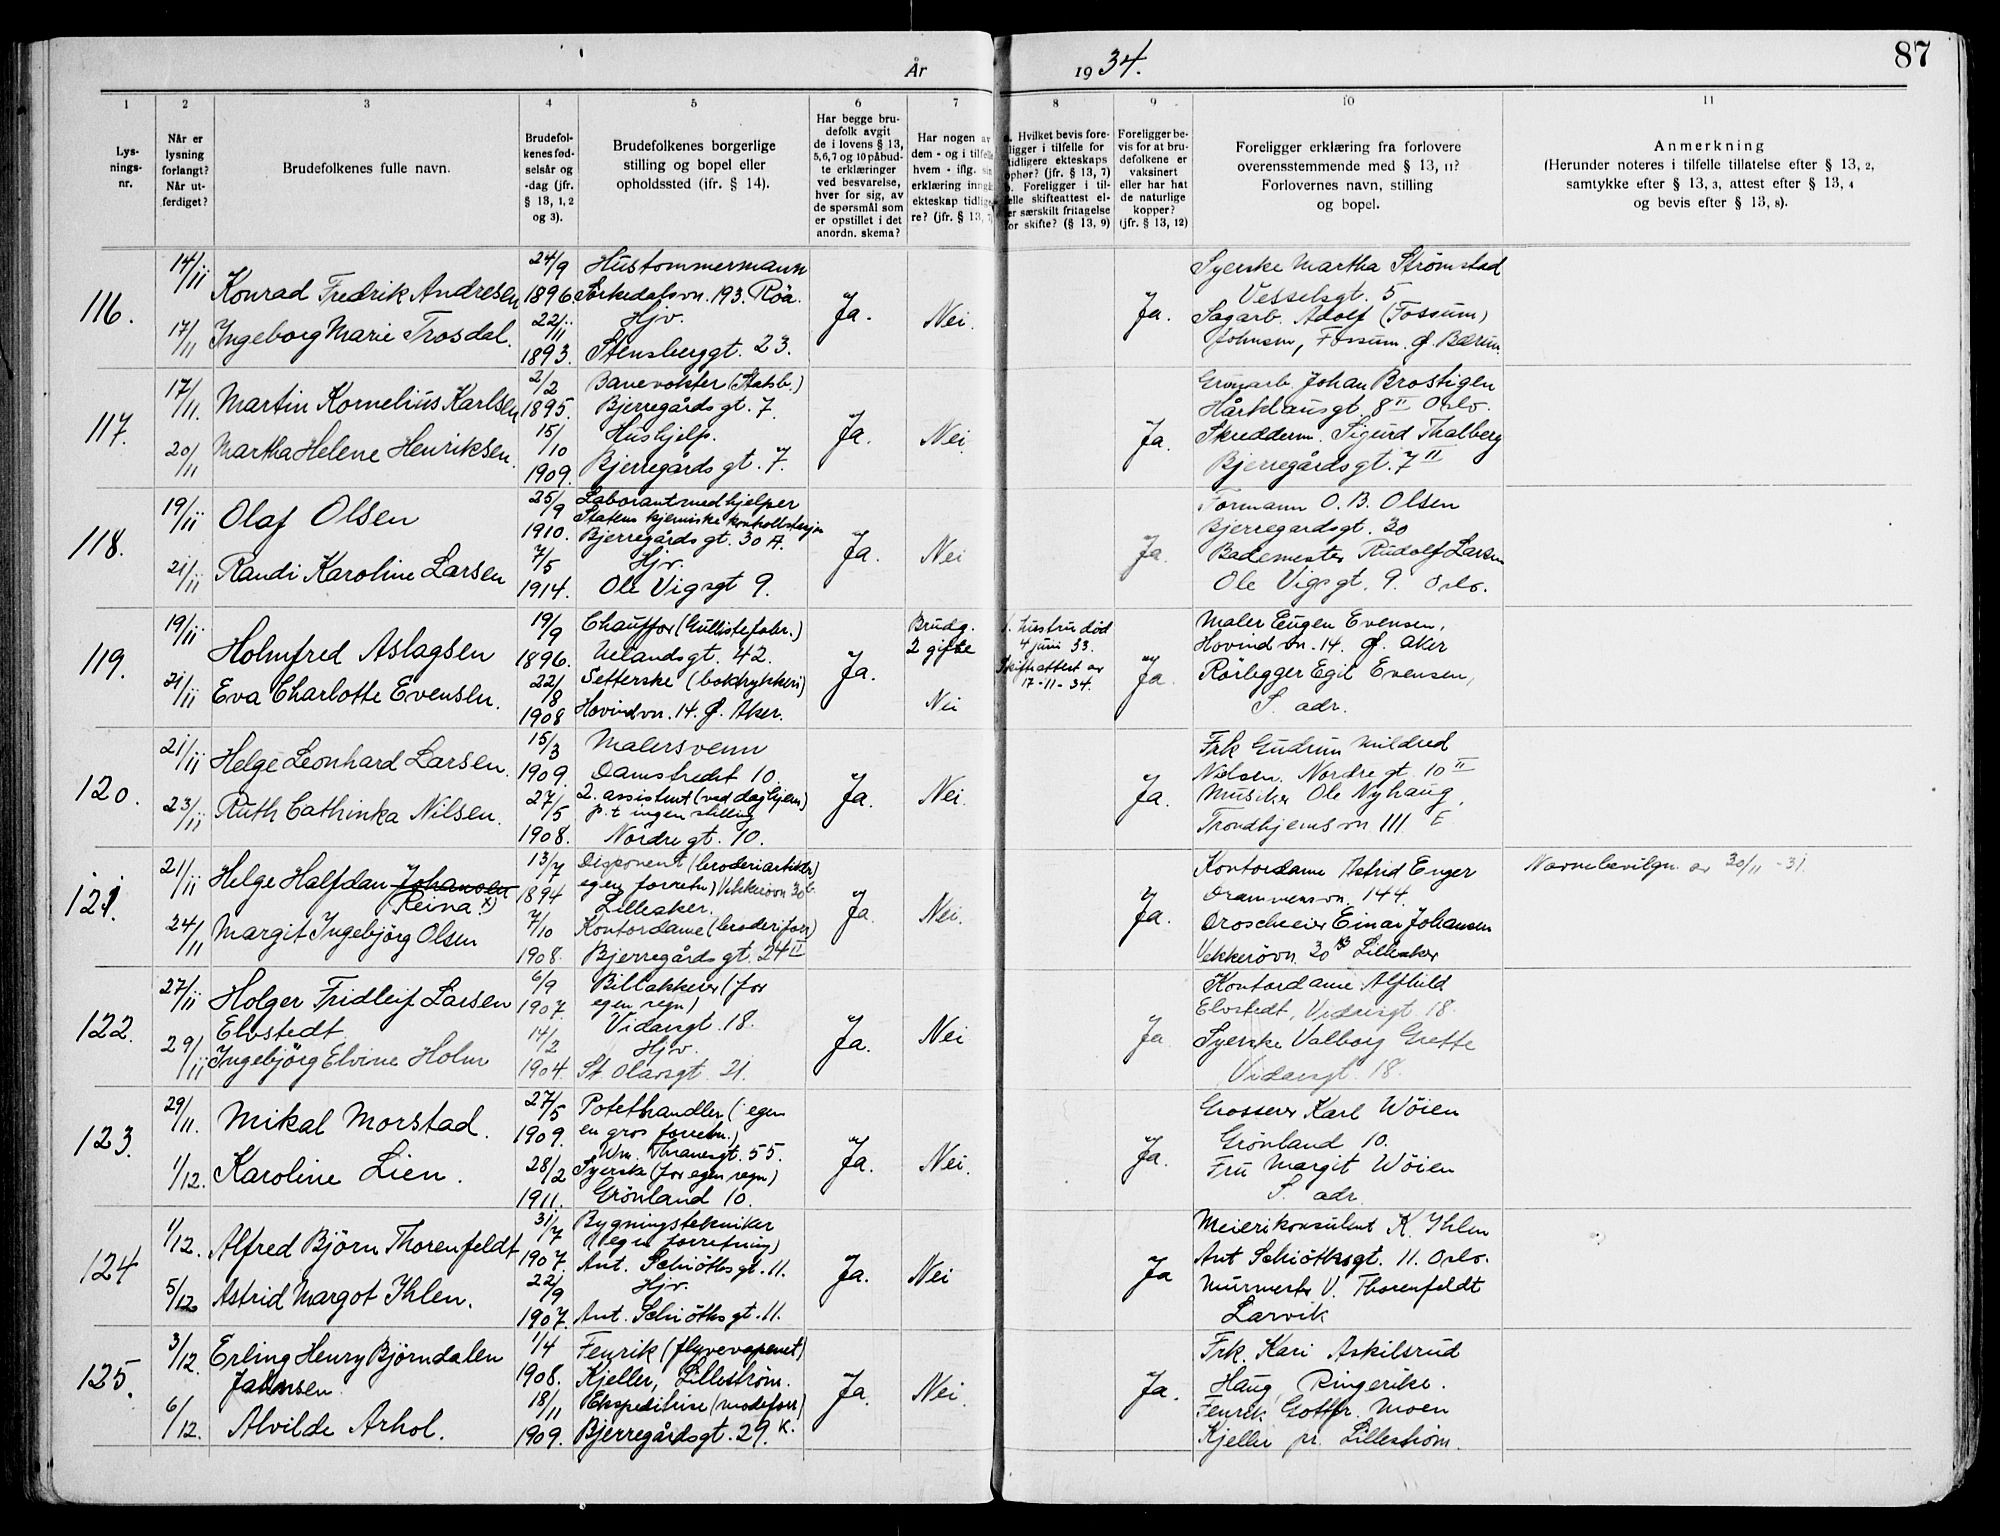 År 1934.
87
1
2
3
4
5
6
7
8
9
10
11
Lys-
nings-
nr.
Når er
lysning
forlangt?
Når ut-
ferdiget?
Brudefolkenes fulle navn.
Brudefol-
kenes fød-
selsår og
-dag (jfr.
§ 13, 1, 2
og 3).
Brudefolkenes borgerlige
stilling og bopel eller
opholdssted (ifr. § 14).
Har begge bru-
defolk avgit
de i lovens § 13,
5,6,7 og 10 påbud-
te erklæringer
ved besvarelse,
hver for sig, av
de spørsmål som
er opstillet i det
anordn. skema?
Har nogen av
dem - og i tilfelle
hvem - iflg. sin
erklæring inngå
ekteskap tidlige
re? (jfr. § 13, 7)
a. Hvilket bevis fore-
ligger i tilfelle for
tidligere ekteskaps
ophør? (jfr. § 13, 7)
b. Foreligger i til-
felle skifteattest el-
ler særskilt fritagelse
for skifte? (§ 13, 9)
Foreligger be-
vis for at bru-
defolkene er
vaksinert
eller har hat
de naturlige
kopper?
(jfr. § 13, 12)
Foreligger erklæring fra forlovere
overensstemmende med § 13, 11?
Forlovernes navn, stilling
og bopel.
Anmerkning
(Herunder noteres i tilfelle tillatelse efter § 13, 2,
samtykke efter § 13, 3, attest efter § 13, 4
og bevis efter § 13, 8).
116.
14/11
17/11
Konrad Fredrik Andresen
Ingeborg Marie Trosdal.
24/9
1896.
22/11
1893.
Hustømmermann
Sørkedalsvn. 193. Röa.
Hjv.
Stensberggt. 23.
Ja.
Nei.
Ja.
Syerske Martha Strömstad
Vesselsgt. 5
Sagarb. Adolf (Fossum)
Johnsen, Fossum. Ø. Bærum.
117.
17/11.
20/11
Martin Kornelius Karlsen
Martha Helene Henriksen.
2/2
1895.
15/10
1909.
Banevokter (Statsb.)
Bjerregårdsgt. 7.
Hushjelp.
Bjerregårdsgt. 7.
Ja.
Nei.
Ja.
Johan Brostigen
8 II Oslo.
Skredderm. Sigurd Thalberg
Bjerregårdsgt. 7 II
118.
19/11
21/11
Olaf Olsen
Randi Karoline Larsen
25/9
1910.
7/5
1914.
Laborantmedhjelper
Statens kjemiske kontrollstasjon
Bjerregårdsgt. 30 A.
Hjv.
Ole Vigsgt 9.
Ja.
Nei
Ja.
Formann O. B. Olsen
Bjerregardsgt. 30
Bademester Rudolf Larsen
Ole Vigsgt. 9. Oslo.
119.
19/11.
21/11
Holmfred Aslagsen
Eva Charlotte Evensen.
19/9
1896.
22/8
1908
Chauffør (Gullistefabr.)
Uelandsgt. 42.
Setterske (boktrykkeri)
Hovindvn. 14. Ø. Aker.
Ja.
Brudg.
2 gifte
Nei
1. hustru død
4 juni 33.
Skifteattest av
17-11-34.
Ja.
Maler Eugen Evensen,
Hovindvn. 14. Ø. Aker
Rörlegger Egil Evensen,
S. adr.
120.
21/11
23/11
Helge Leonhard Larsen.
Ruth Cathinka Nilsen.
15/3
1909.
27/5
1908.
Malersvenn
Damstredet 10.
2. assistent (ved daghjem)
p.t ingen stilling
Nordregt. 10.
Ja.
Nei.
Ja.
Frk Gudrun Mildred
Nielsen. Nordregt. 10 II
Musiker Ole Nyhaug,
Trondhjemsvn 111. E
121.
21/11
24/11
Helge Halfdan Johansen
(Reina x)
Margit Ingebjörg Olsen
13/7
1894
7/10
1908.
Disponent (broderiartikler)
egen forretn) Vekkerövn 30 b.
Lilleaker.
Kontordame (broderiforr)
Bjerregårdsgt. 24 II
Ja.
Nei.
Ja.
Kontordame Astrid Enger
Drammensvn. 144.
Droscheeier Einar Johansen
Vekkerövn. 30 B Lilleaker
Navnebevilgn. av 30/11 -31.
122.
27/11
29/11
Holger Fridleif Larsen
Elvstedt,
Ingebjörg Elvine Holm
6/9
1907.
14/2
1904.
Billakkerer (for
egen regn)
Vidarsgt. 18.
Hjv.
St. Olavsgt. 21.
Ja.
Nei
Ja
Kontordame Alfhild
Elvstedt, Vidarsgt. 18.
Syerske Valborg Grette
Vidarsgt. 18.
123.
29/11.
1/12.
Mikal Morstad.
Karoline Lien.
27/5
1909.
28/2
1911.
Potethandler (egen
en gros forretn.)
Wm. Thranesgt. 55.
Syerske (for egen regn)
Grönland 10.
Ja.
Nei.
Ja.
Grosserer Karl Wöien
Grönland 10.
Fru Margit Wöien
S. adr.
124
1/12.
5/12
Alfred Björn Thorenfeldt
Astrid Margot Ihlen.
31/7
1907.
22/9
1907.
Bygningstekniker
(egen forretning)
Ant. Schiöthsgt. 11.
Hjv.
Ant. Schiöthsgt. 11.
Ja.
Nei
Ja
Meierikonsulent K. Ihlen
Ant Schiöthsgt. 11. Oslo.
Murmester V. Thorenfeldt
Larvik
125.
3/12.
6/12.
Erling Henry Björndalen
Jahnsen.
Alvilde Arhol.
1/4
1908.
18/11
1909.
Fenrik (flyvevapenet)
Kjeller, Lilleström.
Ekspeditrise (moteforr)
Bjerregårdsgt. 29. K.
Ja
Nei.
Ja.
Frk. Kari Askilsrud
Haug, Ringerike.
Fenrik Gottfr. Moen
Kjeller pr. Lilleström.